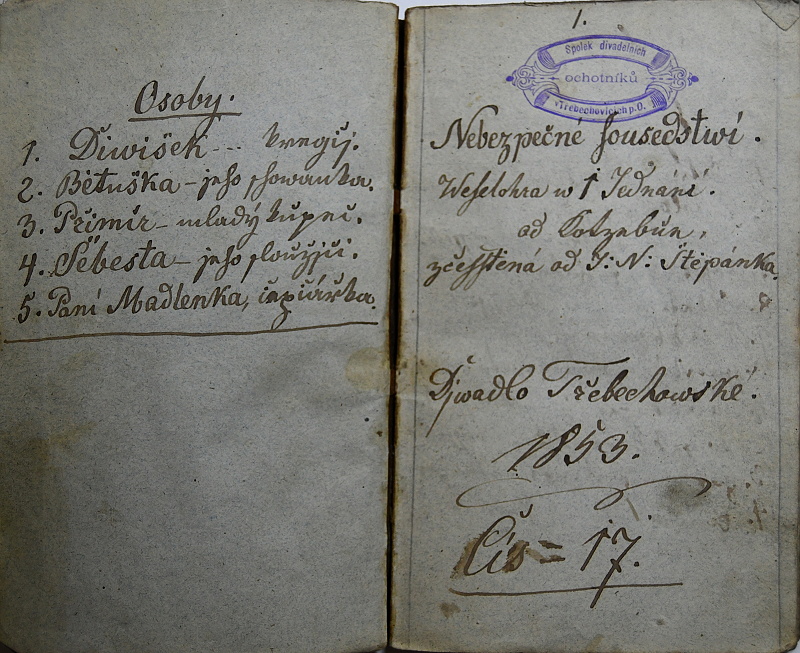 Osoby.
1. Diwišek... kregčj.
2. Bětuška – jeho schowanka.
3. Přimír – mladý kupec.
4. Šebesta – jeho sloužjcí.
5. Paní Madlenka, čepčářka.
1.
Spolek divadelních
ochotníků
v Třebechovicích p.O.
Nebezpečné sousedstwí.
Weselohra w 1 Jednání.
od Kotzebue,
zčeštěná od J: N: Štěpánka.
Djwadlo Třebechowské.
1853.
Čís = 17.